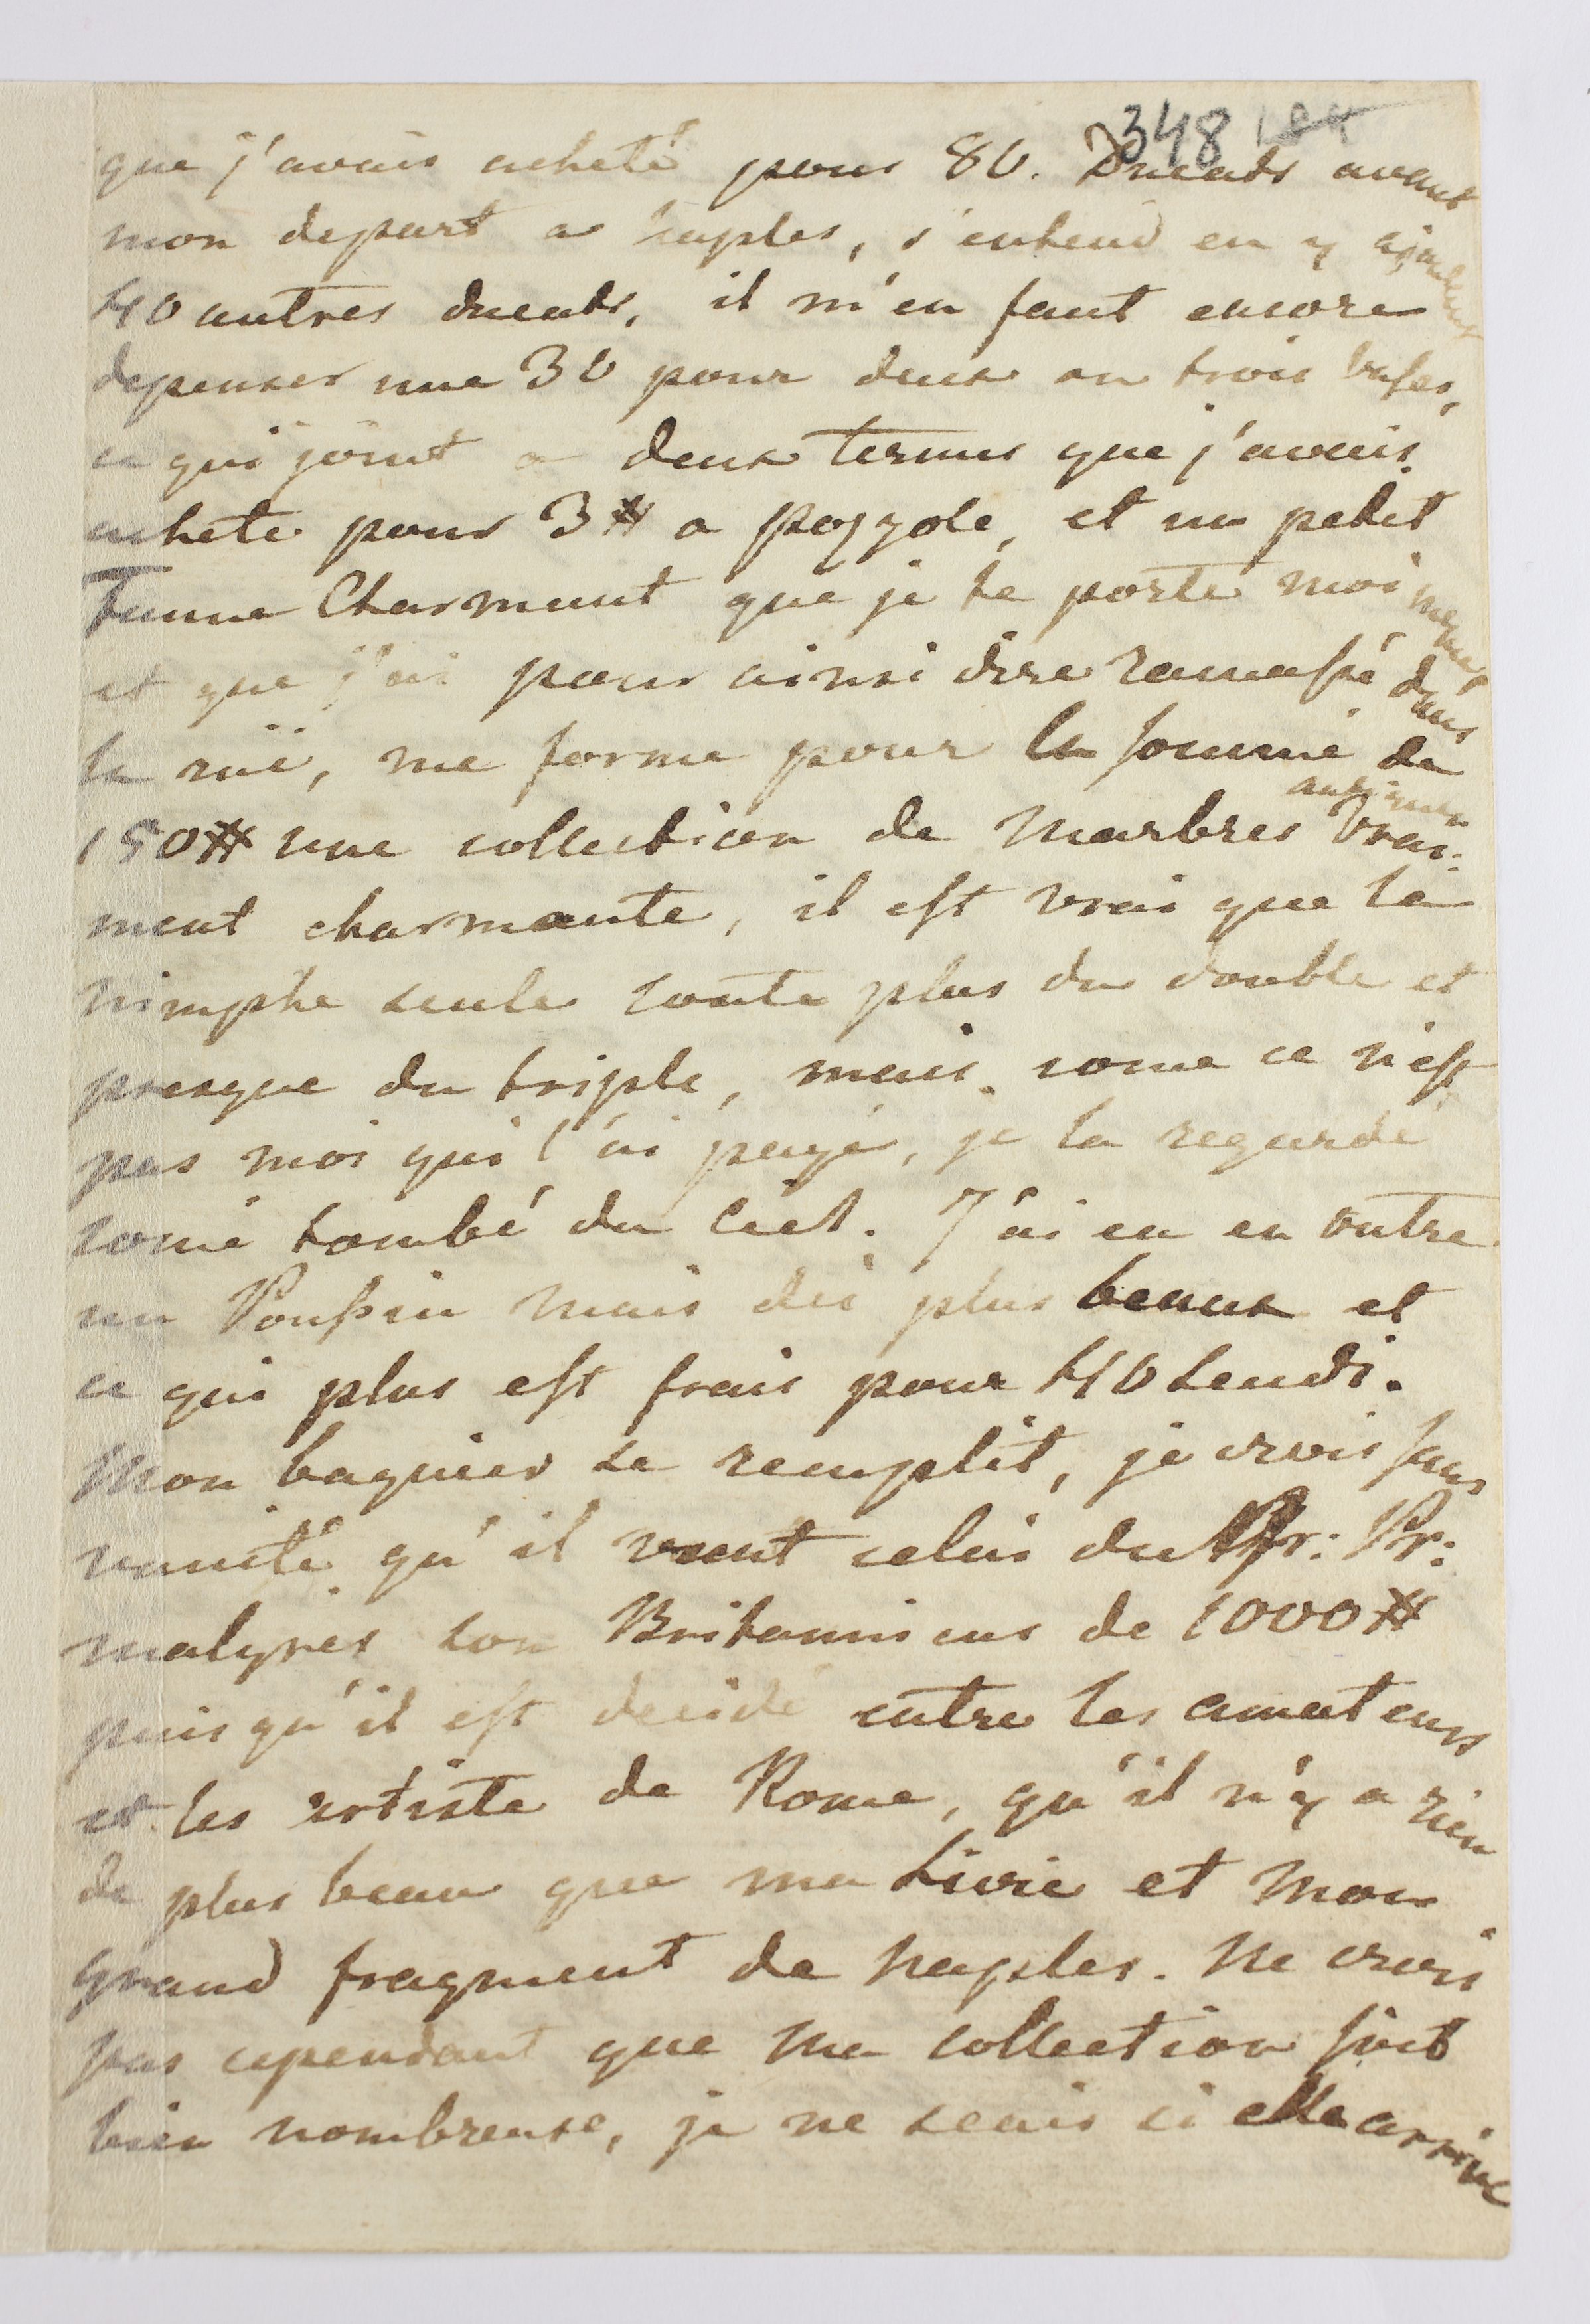 348
que j'avais acheté pour 80. Ducats avant
mon depart a naples, s'entend en y ajoutant
40 autres ducats, il m'en faut encore
depenser une 30 pour deux ou trois bustes,
ce qui joint a deux termes que j'avais
achete pour 3# a pozzole, et un petit
Faune Charmant que je te porte moi meme,
et que j'ai pour ainsi dire ramassé dans
la ruë, me forme pour la somme de
150# une collection de Marbres antiques vrai-
ment charmante, il est vrai que la
nimphe seule coute plus du double et
presque du triple, mais come ce n'est
pas moi qui l'ai payé, je la regarde
come tombé du ciel. J'ai eu en outre
un Poussin mais des plus beaux et
ce qui plus est frais pour 40 scudi.
Mon baguier se remplit, je crois sans
vanité qu'il vaut celui du Pr: Pr:
malgres son Britannicus de 1000#
puis qu'il est decidé entre les amateurs
et les artiste de Rome, qu'il n'y a rien
de plus beau que ma Livie et mon
grand fragment de Naples. Ne crois
pas cependant que ma collection soit
bien nombreuse, je ne scais si elle arrive